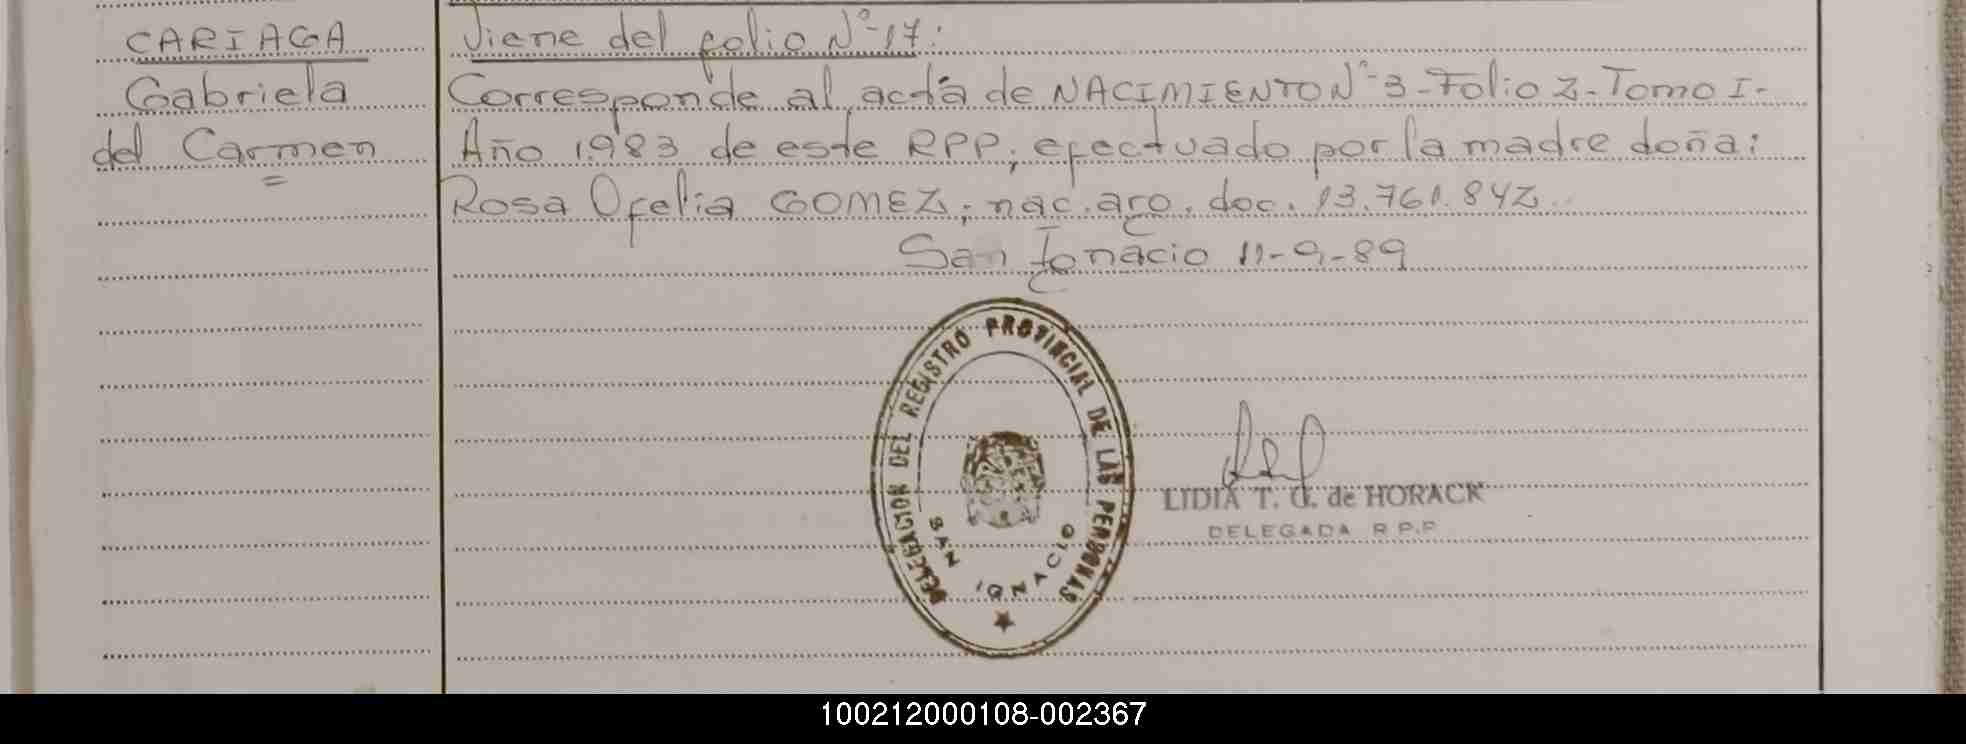 CARIAGA
Gabriela
del Carmen
Viene del folio Nº-17:
Corresponde al acta de NACIMIENTO Nº-3-Folio 2-Tomo I-
Año 1983 de este RPP, efectuado por la madre doña:
Rosa Ofelia GOMEZ, nac. arg. doc. 13.761.842
San Ignacio 11-9-89
DELEGACION DEL REGISTRO PROVINCIAL DE LAS PERSONAS
SAN IGNACIO
LIDIA T. G. de HORACK
DELEGADA R.P.P.
100212000108-002367